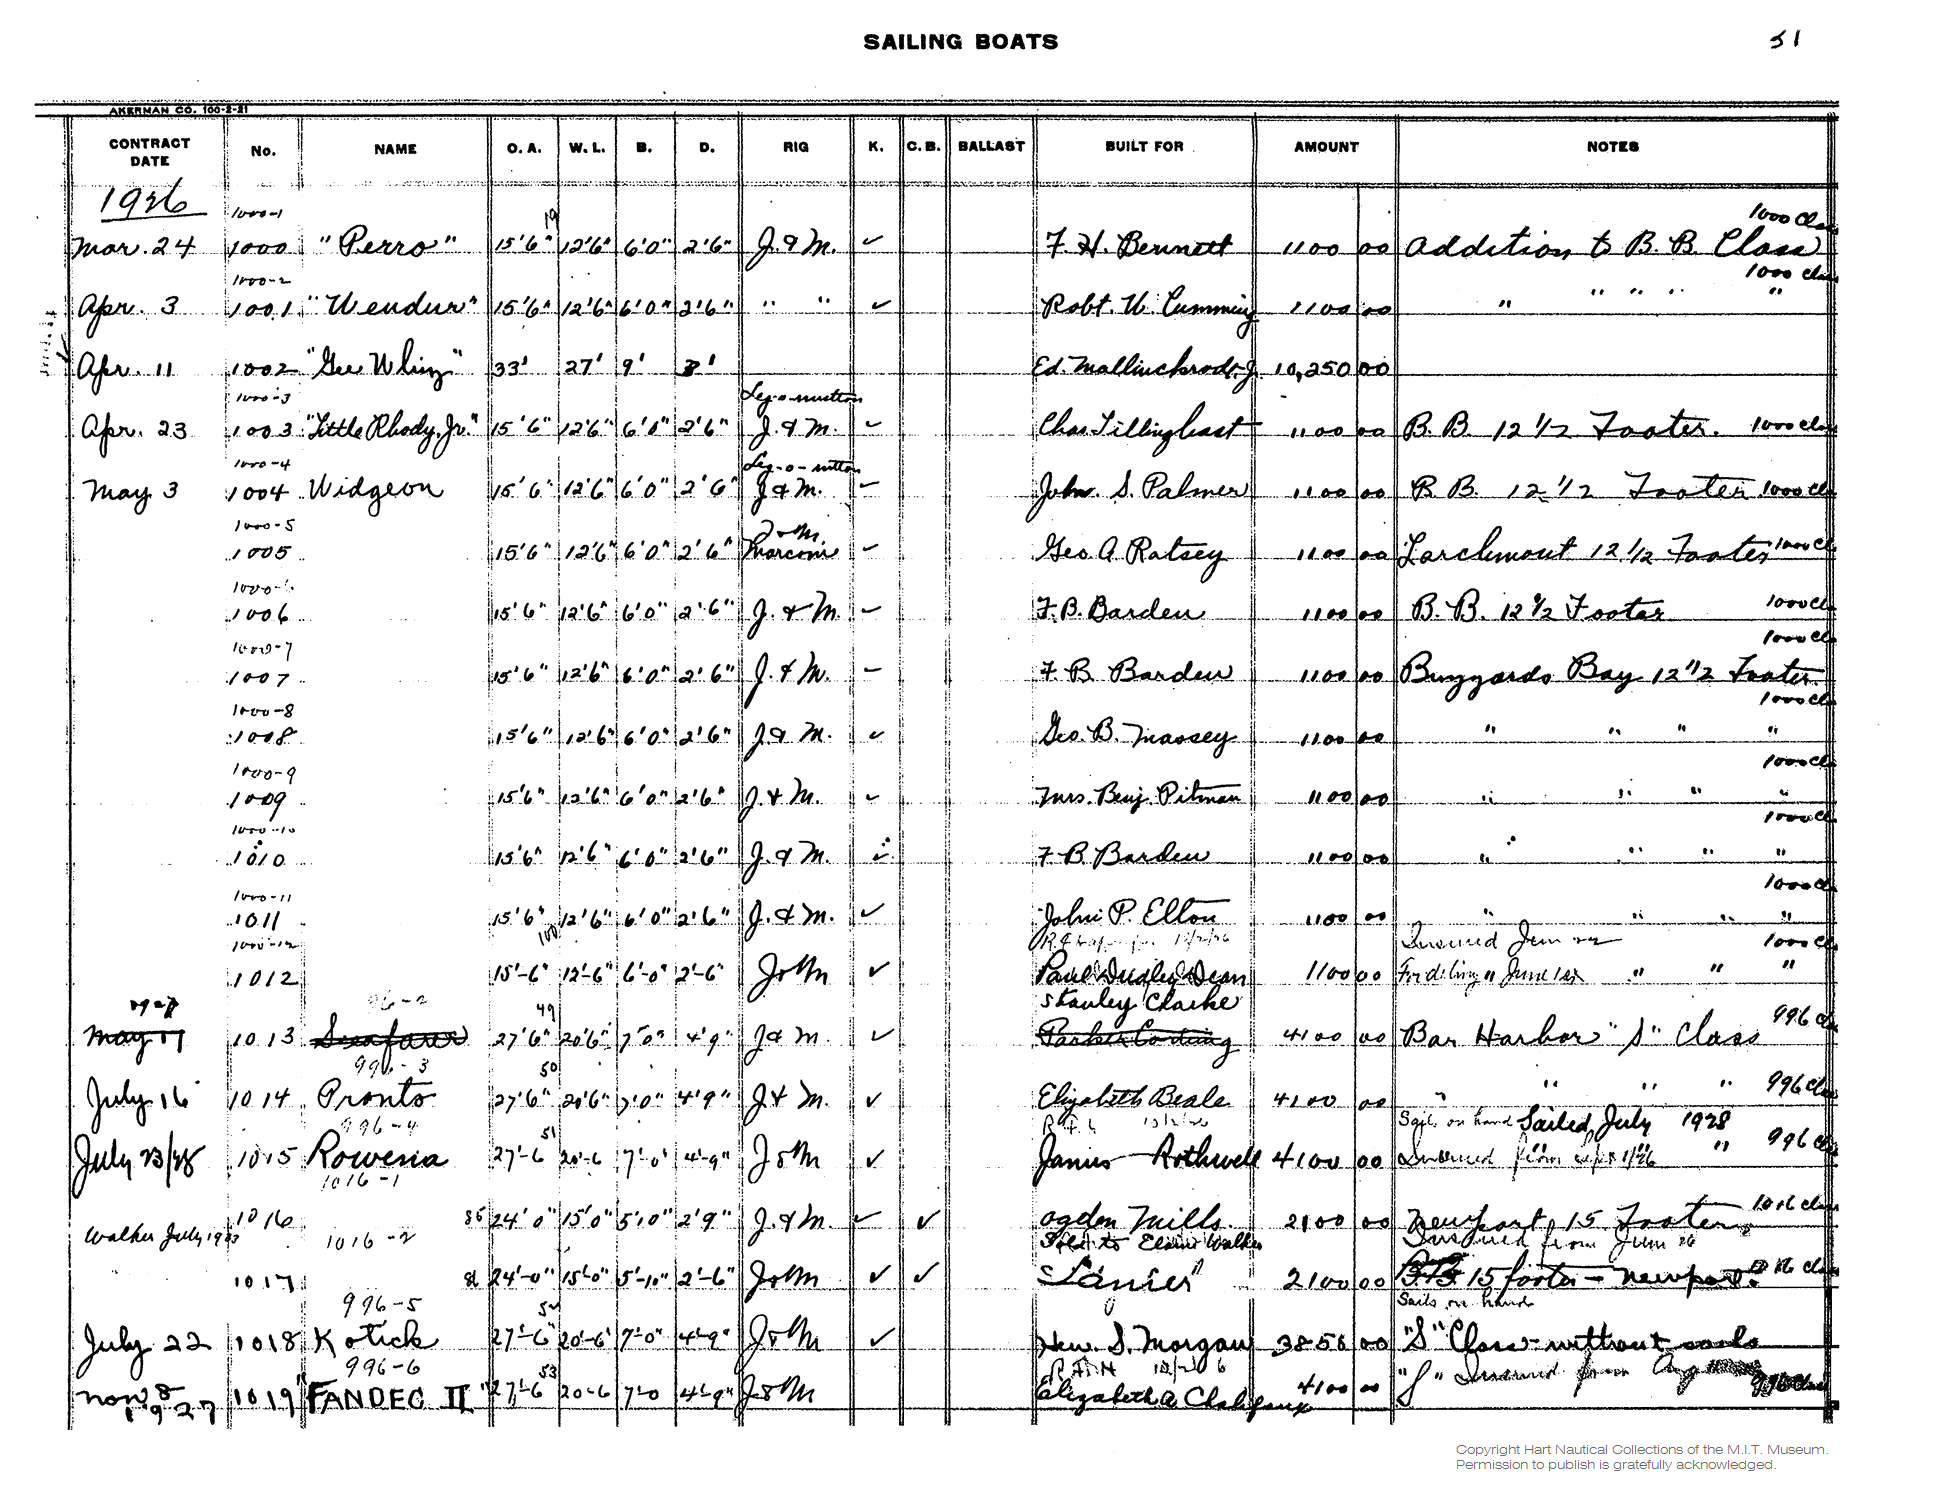 SAILING BOATS 51
AKERMAN CO. 100-2-21
CONTRACT DATE No. NAME O. A. W. L. B. D. RIG K. C. B. BALLAST BUILT FOR AMOUNT NOTES
1926
1000-1 19 1000 Class
Mar. 24 1000 "Perro" 15'6" 12'6" 6'0" 2'6" J. & M. ✓ F. H. Bennett 1100 00 Addition to B. B. Class
1000-2 1000 Class
Apr. 3 1001 "Wendur" 15'6" 12'6" 6'0" 2'6" " " ✓ Robt. W. Cumming 1100 00 " " " " "
Apr. 11 1002 "Gee Whiz" 33' 27' 9' 3' Ed. Mallinckrodt Jr. 10,250 00
1000-3 Leg-o-mutton
Apr. 23 1003 "Little Rhody, Jr." 15'6" 12'6" 6'0" 2'6" J. & M. ✓ Chas. Tillinghast 1100 00 B. B. 12 1/2 Footer. 1000 Clas
1000-4 Leg-o-mutton
May 3 1004 Widgeon 15'6" 12'6" 6'0" 2'6" J & M. ✓ John. S. Palmer 1100 00 B. B. 12 1/2 Footer 1000 Cla
1000-5 J & M.
1005 15'6" 12'6" 6'0" 2'6" Marconi ✓ Geo A. Ratsey 1100 00 Larchmont 12 1/2 Footer 1000 Cl
1000-6
1006 15'6" 12'6" 6'0" 2'6" J. & M. ✓ F. B. Barden 1100 00 B. B. 12 1/2 Footer 1000 Cl
1000-7 1000 Cla
1007 15'6" 12'6" 6'0" 2'6" J. & M. ✓ F. B. Barden 1100 00 Buzzards Bay 12 1/2 Footer
1000-8 1000 Cla
1008 15'6" 12'6" 6'0" 2'6" J. & M. ✓ Geo. B. Massey 1100 00 " " " "
1000-9 1000 Cla
1009 15'6" 12'6" 6'0" 2'6" J. & M. ✓ Mrs. Benj. Pitman 1100 00 " " " "
1000-10 1000 Cl
1010 15'6" 12'6" 6'0" 2'6" J. & M. ✓ F. B. Barden 1100 00 " " " "
1000-11 1000 Cl
1011 15'6" 12'6" 6'0" 2'6" J. & M. ✓ John P. Elton 1100 00 " " " "
1000-12 100 Insured Jun 22 1000 Cl
1012 15'-6" 12'-6" 6'-0" 2'-6" J & M ✓ Paul Dudley Dean 1100 00 June 1st " " "
96-2 49 Stanley Clarke 996 Cla
May 17 1013 Seafarer 27'6" 20'6" 7'0" 4'9" J & M. ✓ Parker Corning 4100 00 Bar Harbor "S" Class
996-3 50
July 16 1014 Pronto 27'6" 20'6" 7'0" 4'9" J & M. ✓ Elizabeth Beale 4100 00 " " " " 996 Clas
996-4 51 Sails on hand Sailed July 1928
July 23/28 1015 Rowena 27'-6 20'-6 7'-0" 4'-9" J & M ✓ James Rothwell 4100 00 Insured from Sept 1/26 " 996 Cla
1016-1
1016 85 24'0" 15'0" 5'10" 2'9" J. & M. ✓ ✓ Ogden Mills. 2100 00 Newport 15 Footer 1016 Clas
Walker July 1933 1016-2 Sold to Elaine Walker Insured from June 26
1017 86 24'-0" 15'-0" 5'-10" 2'-6" J & M ✓ ✓ Lanier 2100 00 B.B. 15 footer - Newport. 1016 Clas
996-5 52 Sails on hand
July 22 1018 Kotick 27'-6" 20'-6" 7'-0" 4'-9" J & M ✓ Hen. S. Morgan 3856 00 "S" Class - without sails
996-6 53
Nov 8 1927 1019 "FANDEC II" 27'-6 20-6 7'-0 4'-9" J & M Elizabeth A. Chalifoux 4100 00 "S" Insured from Aug 996 Class
Copyright Hart Nautical Collections of the M.I.T. Museum.
Permission to publish is gratefully acknowledged.